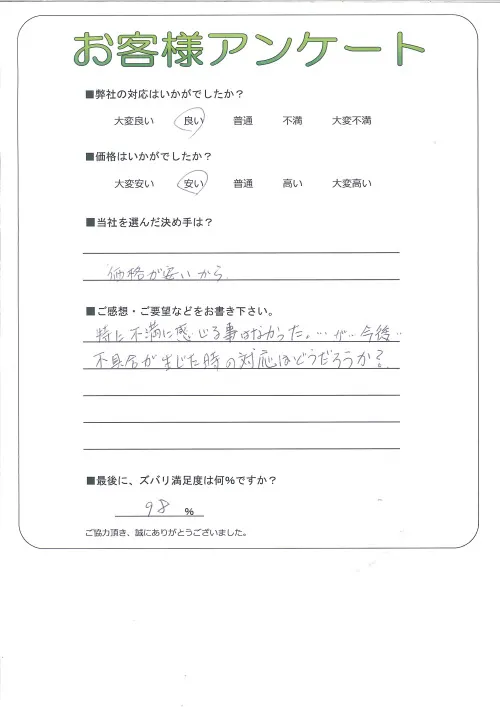 お客様アンケート
■弊社の対応はいかがでしたか？
大変良い 良い 普通 不満 大変不満
■価格はいかがでしたか？
大変安い 安い 普通 高い 大変高い
■当社を選んだ決め手は？
価格が安いから
■ご感想・ご要望などをお書き下さい。
特に不満に感じる事はなかった。…が…今後…
不具合が生じた時の対応はどうだろうか？
■最後に、ズバリ満足度は何%ですか？
98 %
ご協力頂き、誠にありがとうございました。